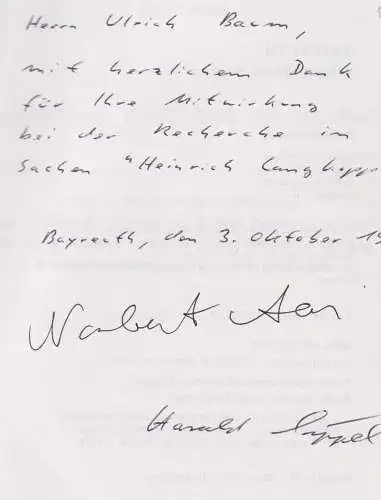 Herrn Ulrich Baum,
mit herzlichem Dank
für Ihre Mitwirkung
bei der Recherche in
Sachen "Heinrich Langkopp
Bayreuth, den 3. Oktober 19
Norbert
Harald